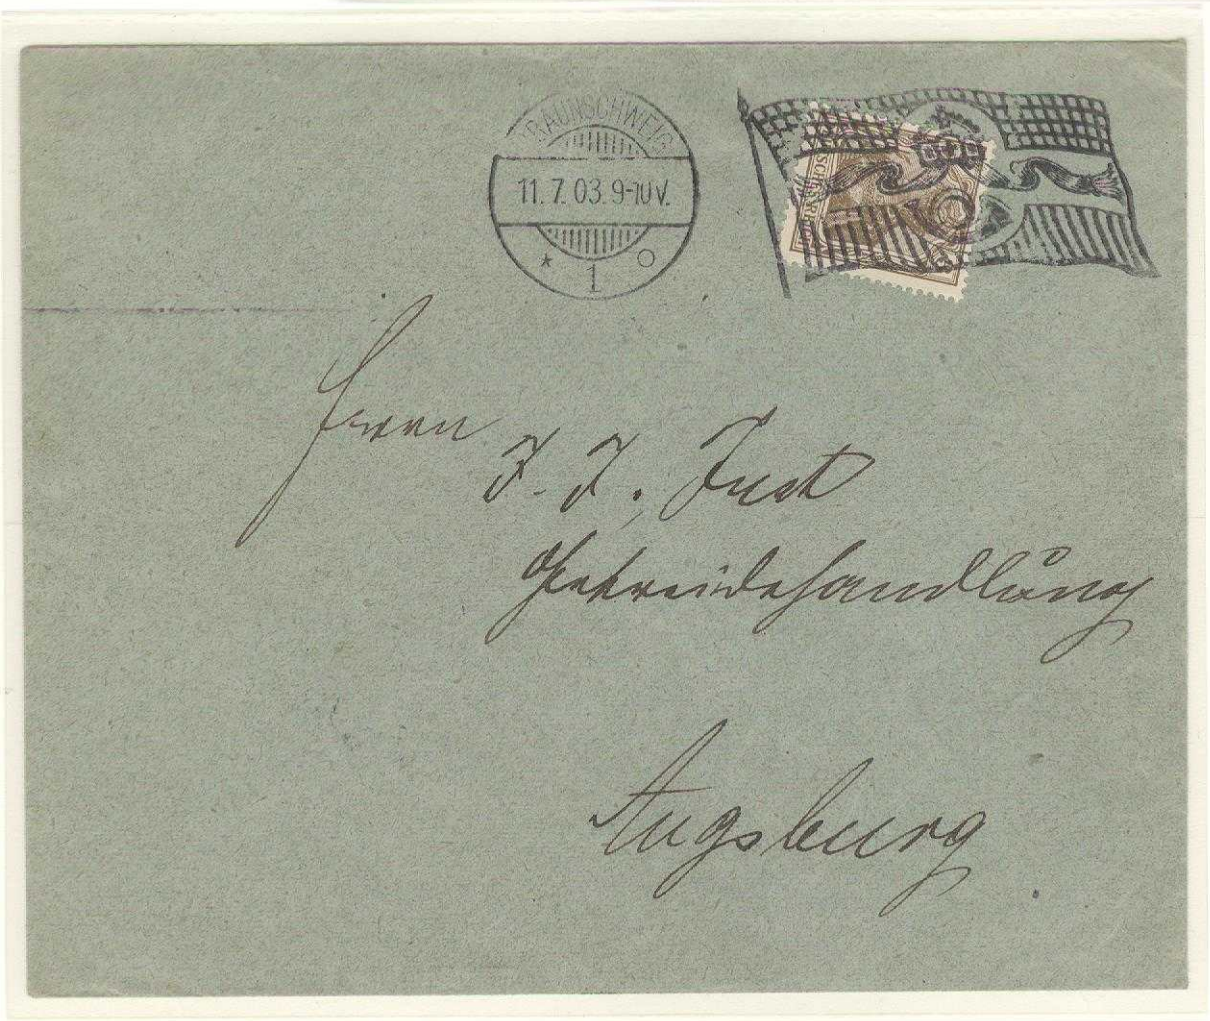 BRAUNSCHWEIG
11. 7. 03. 9-10 V.
* 1 o
Herrn
J. J. Just
Getreidehandlung
Augsburg